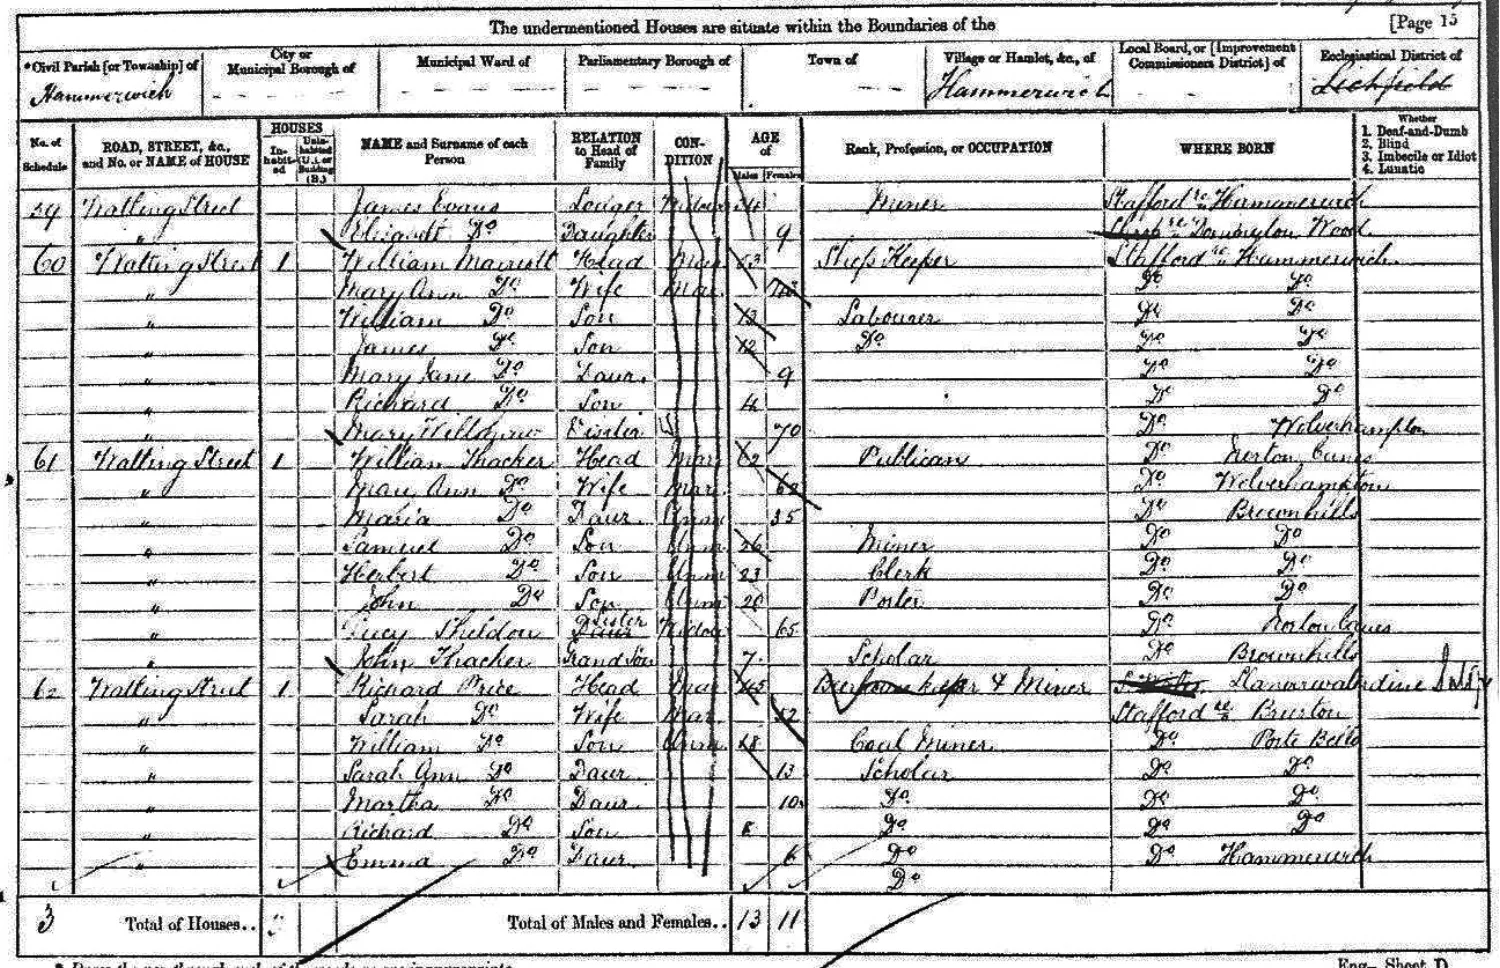 The undermentioned Houses are situate within the Boundaries of the [Page 15
*Civil Parish [or Township] of City or Municipal Borough of Municipal Ward of Parliamentary Borough of Town of Village or Hamlet, &c., of Local Board, or [Improvement Commissioners District] of Ecclesiastical District of
Hammerwich Hammerwich Lichfield
No. of Schedule ROAD, STREET, &c., and No. or NAME of HOUSE HOUSES Inhabited Uninhabited (U.), or Building (B.) NAME and Surname of each Person RELATION to Head of Family CONDITION AGE of Males Females Rank, Profession, or OCCUPATION WHERE BORN Whether 1. Deaf-and-Dumb 2. Blind 3. Imbecile or Idiot 4. Lunatic
59 Watling Street James Evans Lodger Miner Stafford re Hammerwich
" Elizabeth Do Daughter 9 Donnington Wood
60 Watling Street 1 William Marriott Head Mar Keeper Stafford re Hammerwich
" Mary Ann Do Wife Mar Do Do
" William Do Son 13 Labourer Do Do
" James Do Son 12 Do Do Do
" Mary Jane Do Daur. 9 Do Do
" Richard Do Son 4 Do Do
" Mary Visitor W 70 Do Wolverhampton
61 Watling Street 1 William Thacker Head Mar 62 Publican Do Norton Canes
" Mary Ann Do Wife Mar 62 Do Wolverhampton
" Maria Do Daur Unm 35 Do Brownhills
" Samuel Do Son Unm 26 Miner Do Do
" Herbert Do Son Unm 23 Clerk Do Do
" John Do Son Unm 20 Porter Do Do
" Lucy Sheldon Daur Sister Widow 65 Do Norton Canes
" John Thacker Grand Son 7 Scholar Do Brownhills
62 Watling Street 1 Richard Price Head Mar 45 Beerhouse keeper & Miner
" Sarah Do Wife Mar 52 Stafford re
" William Do Son Unm 18 Coal Miner Do Porto Bello
" Sarah Ann Do Daur 13 Scholar Do Do
" Martha Do Daur 10 Do Do Do
" Richard Do Son 8 Do Do Do
" Emma Do Daur 6 Do Do Hammerwich
Do
3 Total of Houses.. 3 Total of Males and Females.. 13 11
Eng—Sheet D.